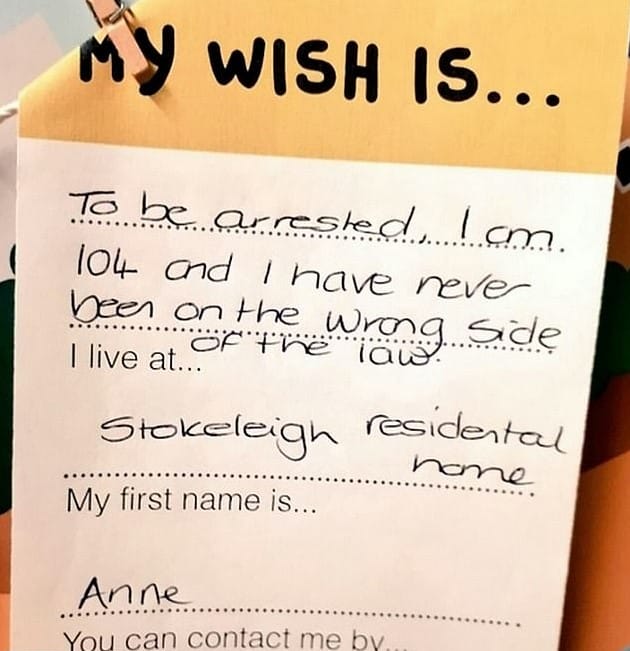 MY WISH IS...
To be arrested, I am
104 and I have never
been on the wrong side
of the law.
I live at...
Stokeleigh residental
home
My first name is...
Anne
You can contact me by...